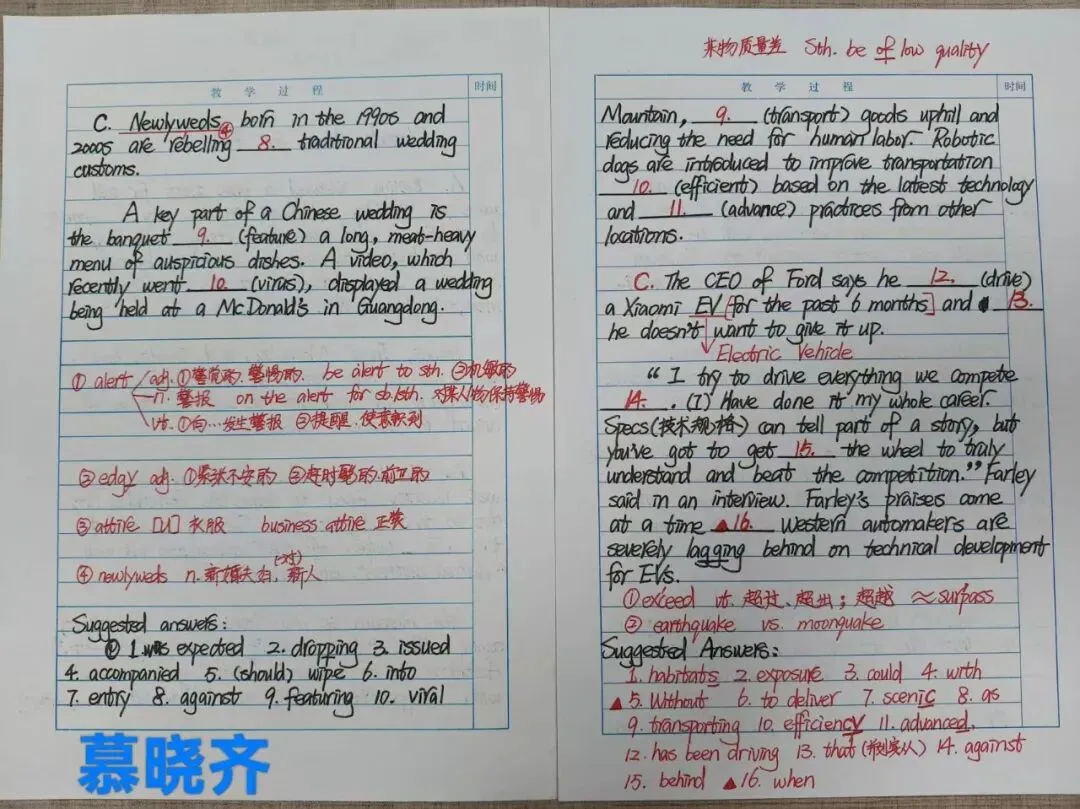 教 学 过 程 时间
C. Newlyweds④ born in the 1990s and
2000s are rebelling 8. traditional wedding
customs.
A key part of a Chinese wedding is
the banquet 9. (feature) a long, meat-heavy
menu of auspicious dishes. A video, which
recently went 10. (virus), displayed a wedding
being held at a McDonald's in Guangdong.
① alert adj. ①警觉的, 警惕的. be alert to sth. ②机敏的
n. 警报 on the alert for sb./sth. 对某人/物保持警惕
vt. ①向…发生警报 ②提醒, 使意识到
② edgy adj. ①紧张不安的 ②赶时髦的, 前卫的
③ attire [U] 衣服 business attire 正装
④ newlyweds n. 新婚夫妇(对), 新人
Suggested answers:
1. was expected 2. dropping 3. issued
4. accompanied 5. (should) wipe 6. into
7. entry 8. against 9. featuring 10. viral
慕晓齐
某物质量差 Sth. be of low quality
教 学 过 程 时间
Mountain, 9. (transport) goods uphill and
reducing the need for human labor. Robotic
dogs are introduced to improve transportation
10. (efficient) based on the latest technology
and 11. (advance) practices from other
locations.
C. The CEO of Ford says he 12. (drive)
a Xiaomi EV [for the past 6 months] and 13.
he doesn't want to give it up.
Electric Vehicle
"I try to drive everything we compete
14. . (I) Have done it my whole career.
Specs(技术规格) can tell part of a story, but
you've got to get 15. the wheel to truly
understand and beat the competition." Farley
said in an interview. Farley's praises come
at a time ▲16. Western automakers are
severely lagging behind on technical development
for EVs.
① exceed vt. 超过、超出; 超越 ≈ surpass
② earthquake vs. moonquake
Suggested Answers:
1. habitats 2. exposure 3. could 4. with
▲5. Without 6. to deliver 7. scenic 8. as
9. transporting 10. efficiency 11. advanced,
12. has been driving 13. that (并列宾从) 14. against
15. behind ▲16. when